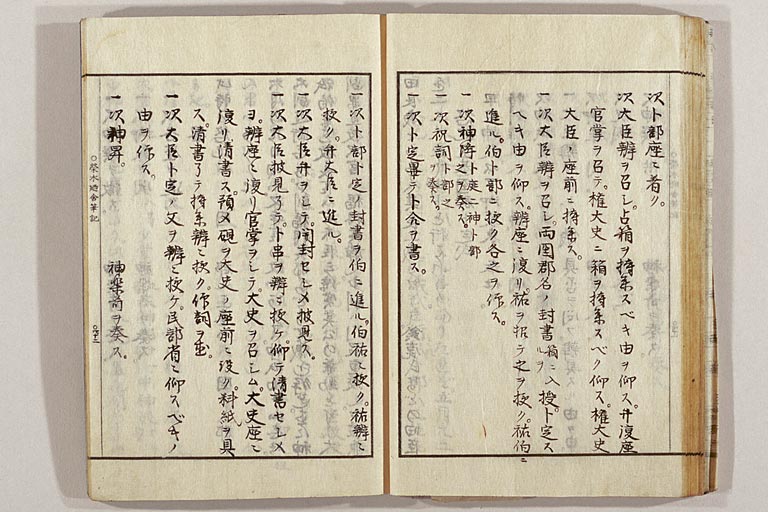 次卜部座ニ着ク。
次大臣辨ヲ召シ占箱ヲ持参スベキ由ヲ仰ス。弁復座
官掌ヲ召テ。權大史ニ箱ヲ持参スベク仰ス。權大史
大臣ノ座前ニ持参ス。
一次大臣辨ヲ召シ。両国郡名ノ封書ヲ箱ニ入授ト定ス
ベキ由ヲ仰ス。辨座ニ復リ。祐ヲ招テ之ヲ授ク。祐伯ニ
進ル。伯卜部ニ授ク各之ヲ作ス。
一次神降卜庭ニ神卜部之ヲ奏ス。
一次祝詞卜部之ヲ奏ス。
一次卜定畢テ卜合ヲ書ス。
次卜部卜定ノ封書ヲ伯ニ進ル。伯祐ニ授ク。祐辨ニ
授ク。弁大臣ニ進ル。
一次大臣弁ヲシテ。開封セシメ披見ス。
一次大臣披見了テ。卜串ヲ辨ニ授ケ。仰テ清書セシメ
ヨ。辨座ニ復リ官掌ヲシテ大史ヲ召シム。大史座ニ
復リ清書ス。預メ硯ヲ大史ノ座前ニ設ク。料紙ヲ具
ス。清書了テ持参辨ニ授ク。作詞ヲ並。
一次大臣卜定ノ文ヲ辨ニ授ケ民部省ニ仰スベキノ
由ヲ作ス。
一次神昇。 神楽斎ヲ奏ス。